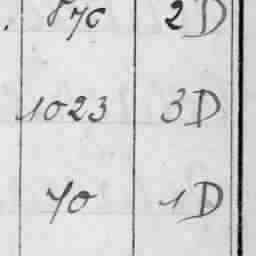 876 2D
1023 3D
70 1D